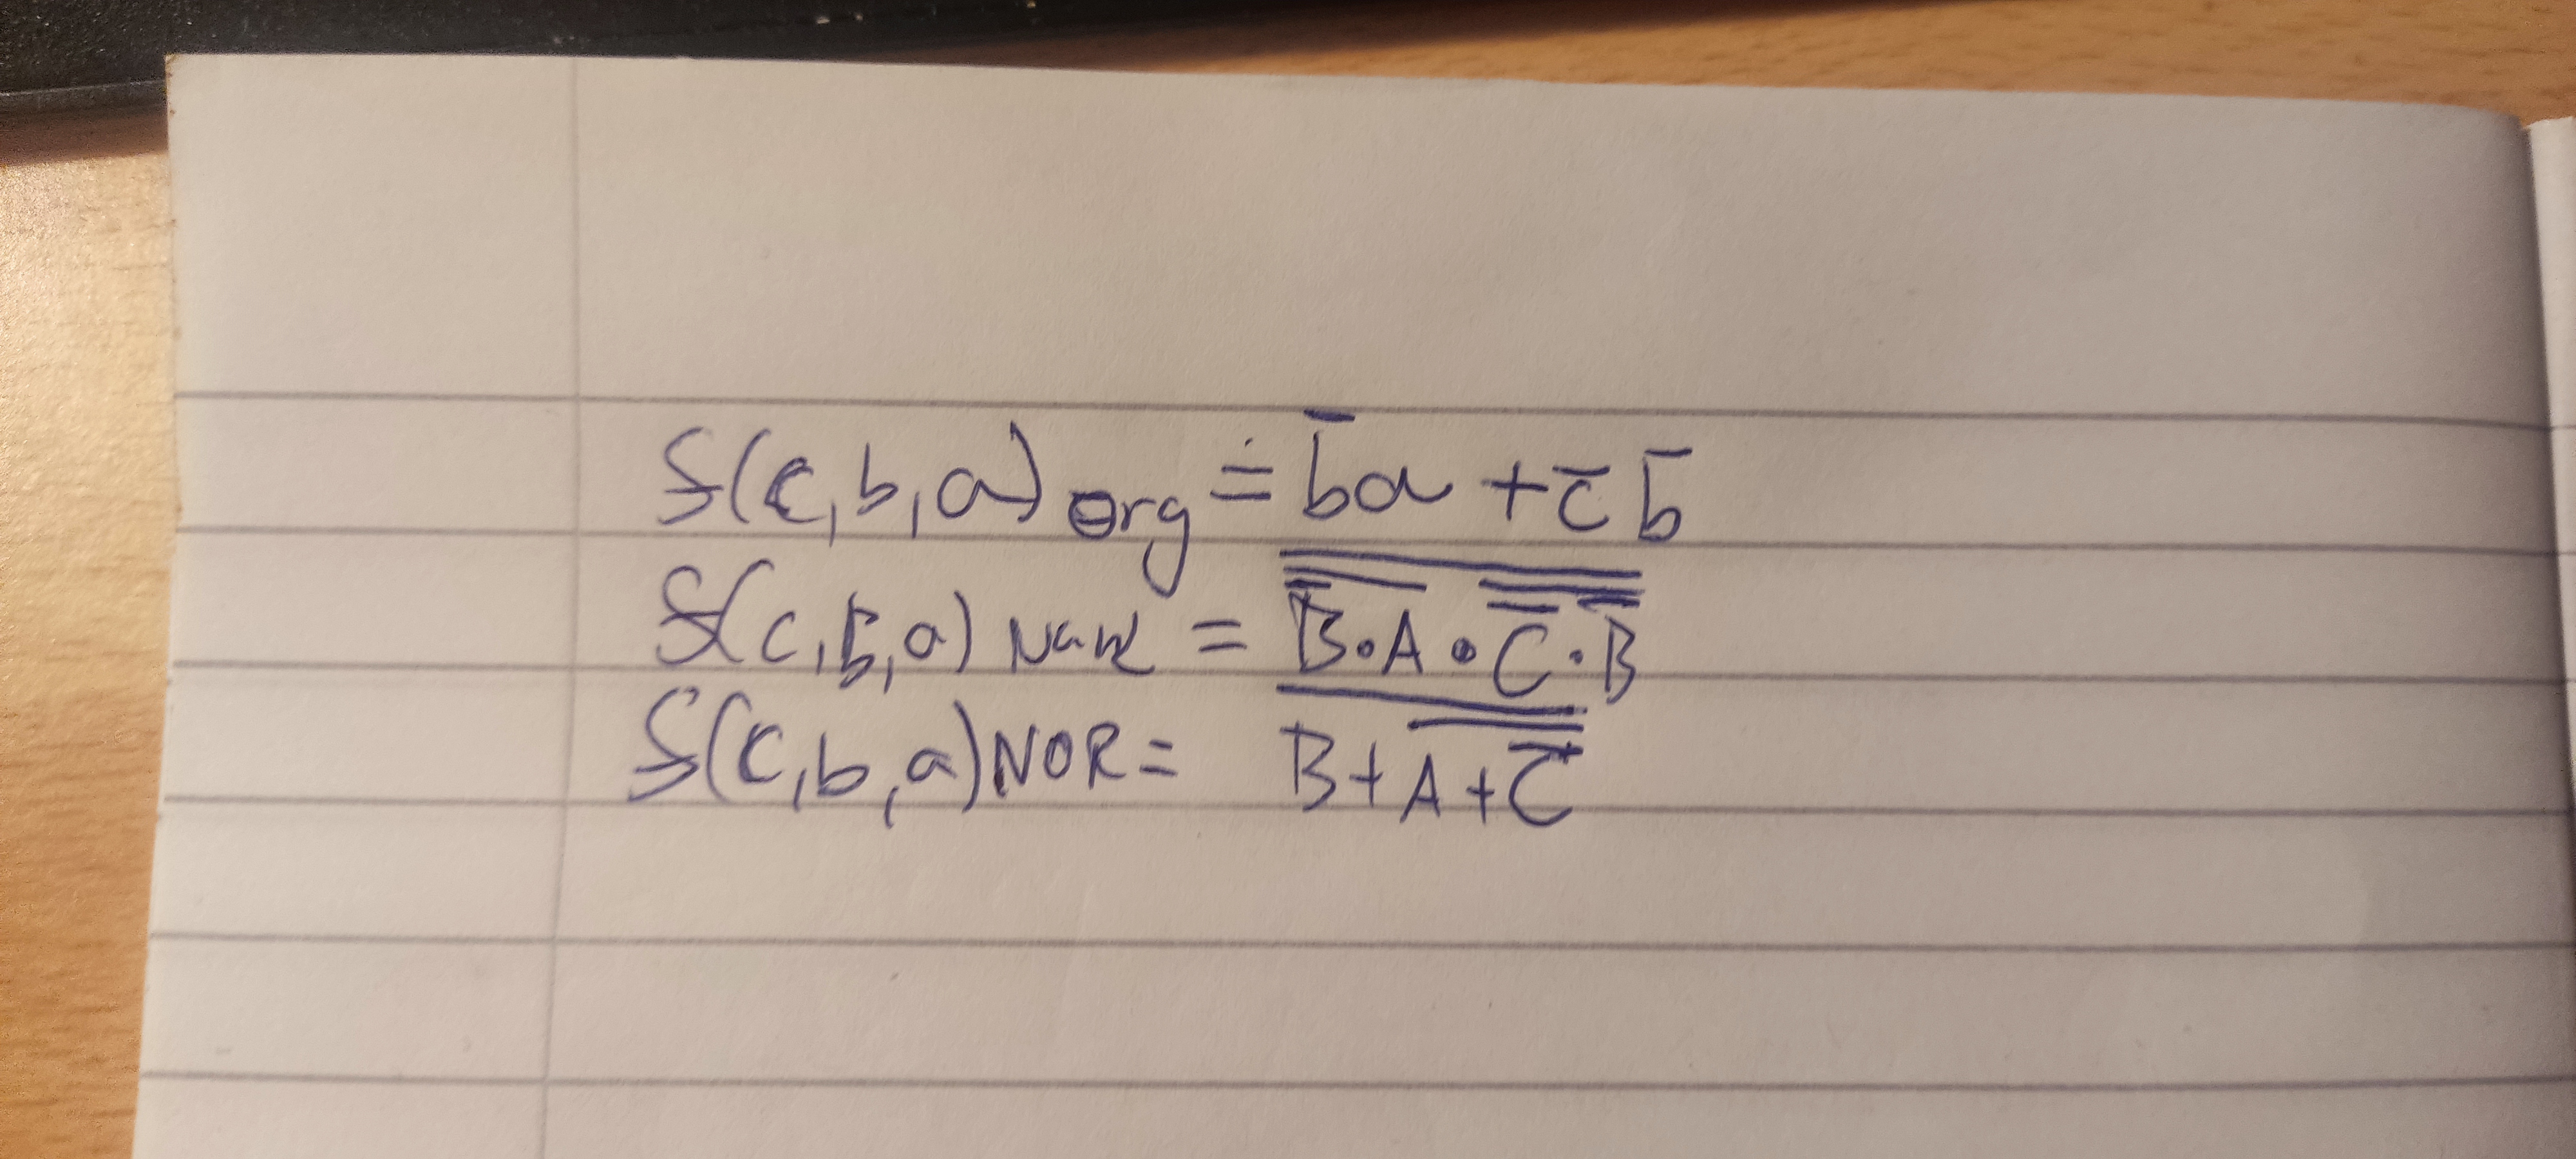 f(c,b,a) org = b̅a + c̅ b̅
f(c,b,a) Nand = B̅·A · C̅·B̅
f(c,b,a) NOR = B+A+C̅